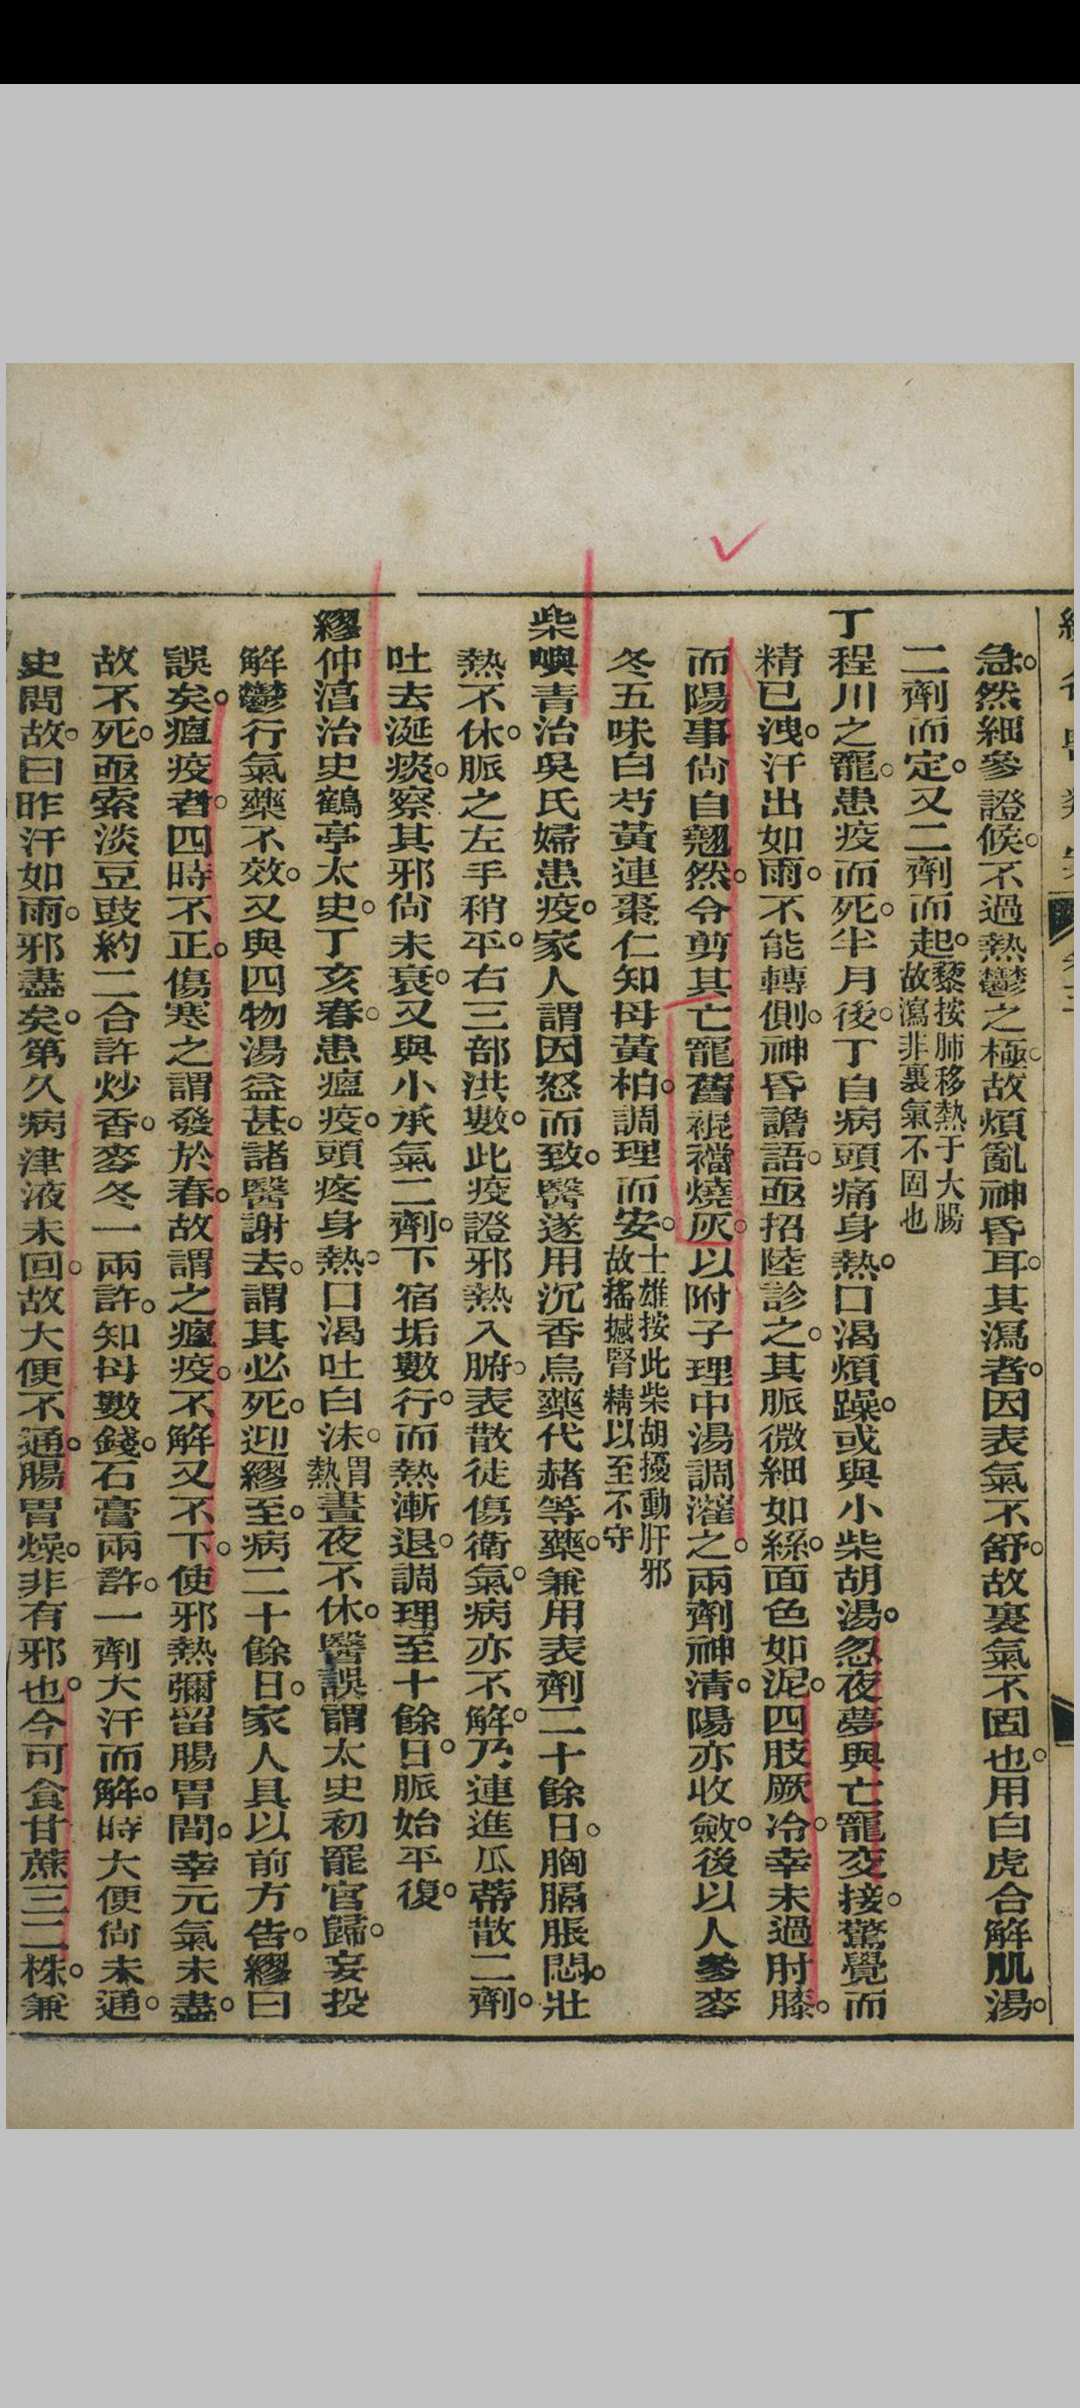 急。然細參證候。不過熱鬱之極。故煩亂神昏耳。其瀉者。因表氣不舒。故裏氣不固也。用白虎合解肌湯。
二劑而定。又二劑而起。藜按肺移熱于大腸
故瀉非裏氣不固也
丁程川之寵。患疫而死。半月後。丁自病頭痛身熱。口渴煩躁。或與小柴胡湯。忽夜夢與亡寵交接。驚覺而
精已洩。汗出如雨。不能轉側。神昏譫語。亟招陸診之。其脈微細如絲。面色如泥。四肢厥冷。幸未過肘膝。
而陽事尙自翹然。令剪其亡寵舊裩襠燒灰。以附子理中湯調灌之。兩劑神清。陽亦收斂。後以人參麥
冬五味白芍黃連棗仁知母黃柏。調理而安。士雄按此柴胡擾動肝邪
故搖撼腎精以至不守
柴嶼青治吳氏婦患疫。家人謂因怒而致。醫遂用沉香烏藥代赭等藥。兼用表劑二十餘日。胸膈脹悶。壯
熱不休。脈之左手稍平。右三部洪數。此疫證邪熱入腑。表散徒傷衛氣。病亦不解。乃連進瓜蒂散二劑。
吐去涎痰。察其邪尙未衰。又與小承氣二劑。下宿垢數行。而熱漸退。調理至十餘日。脈始平復。
繆仲湻治史鶴亭太史。丁亥春。患瘟疫。頭疼身熱。口渴吐白沫。胃
熱晝夜不休。醫誤謂太史初罷官歸。妄投
解鬱行氣藥不效。又與四物湯益甚。諸醫謝去。謂其必死。迎繆至。病二十餘日。家人具以前方告。繆曰
誤矣。瘟疫者。四時不正。傷寒之謂發於春。故謂之瘟疫。不解又不下。使邪熱彌留腸胃間。幸元氣未盡。
故不死。亟索淡豆豉約二合許炒香。麥冬一兩許。知母數錢。石膏兩許。一劑大汗而解。時大便尙未通。
史問故。曰昨汗如雨。邪盡矣。第久病津液未回。故大便不通。腸胃燥。非有邪也。今可食甘蔗三二株。兼